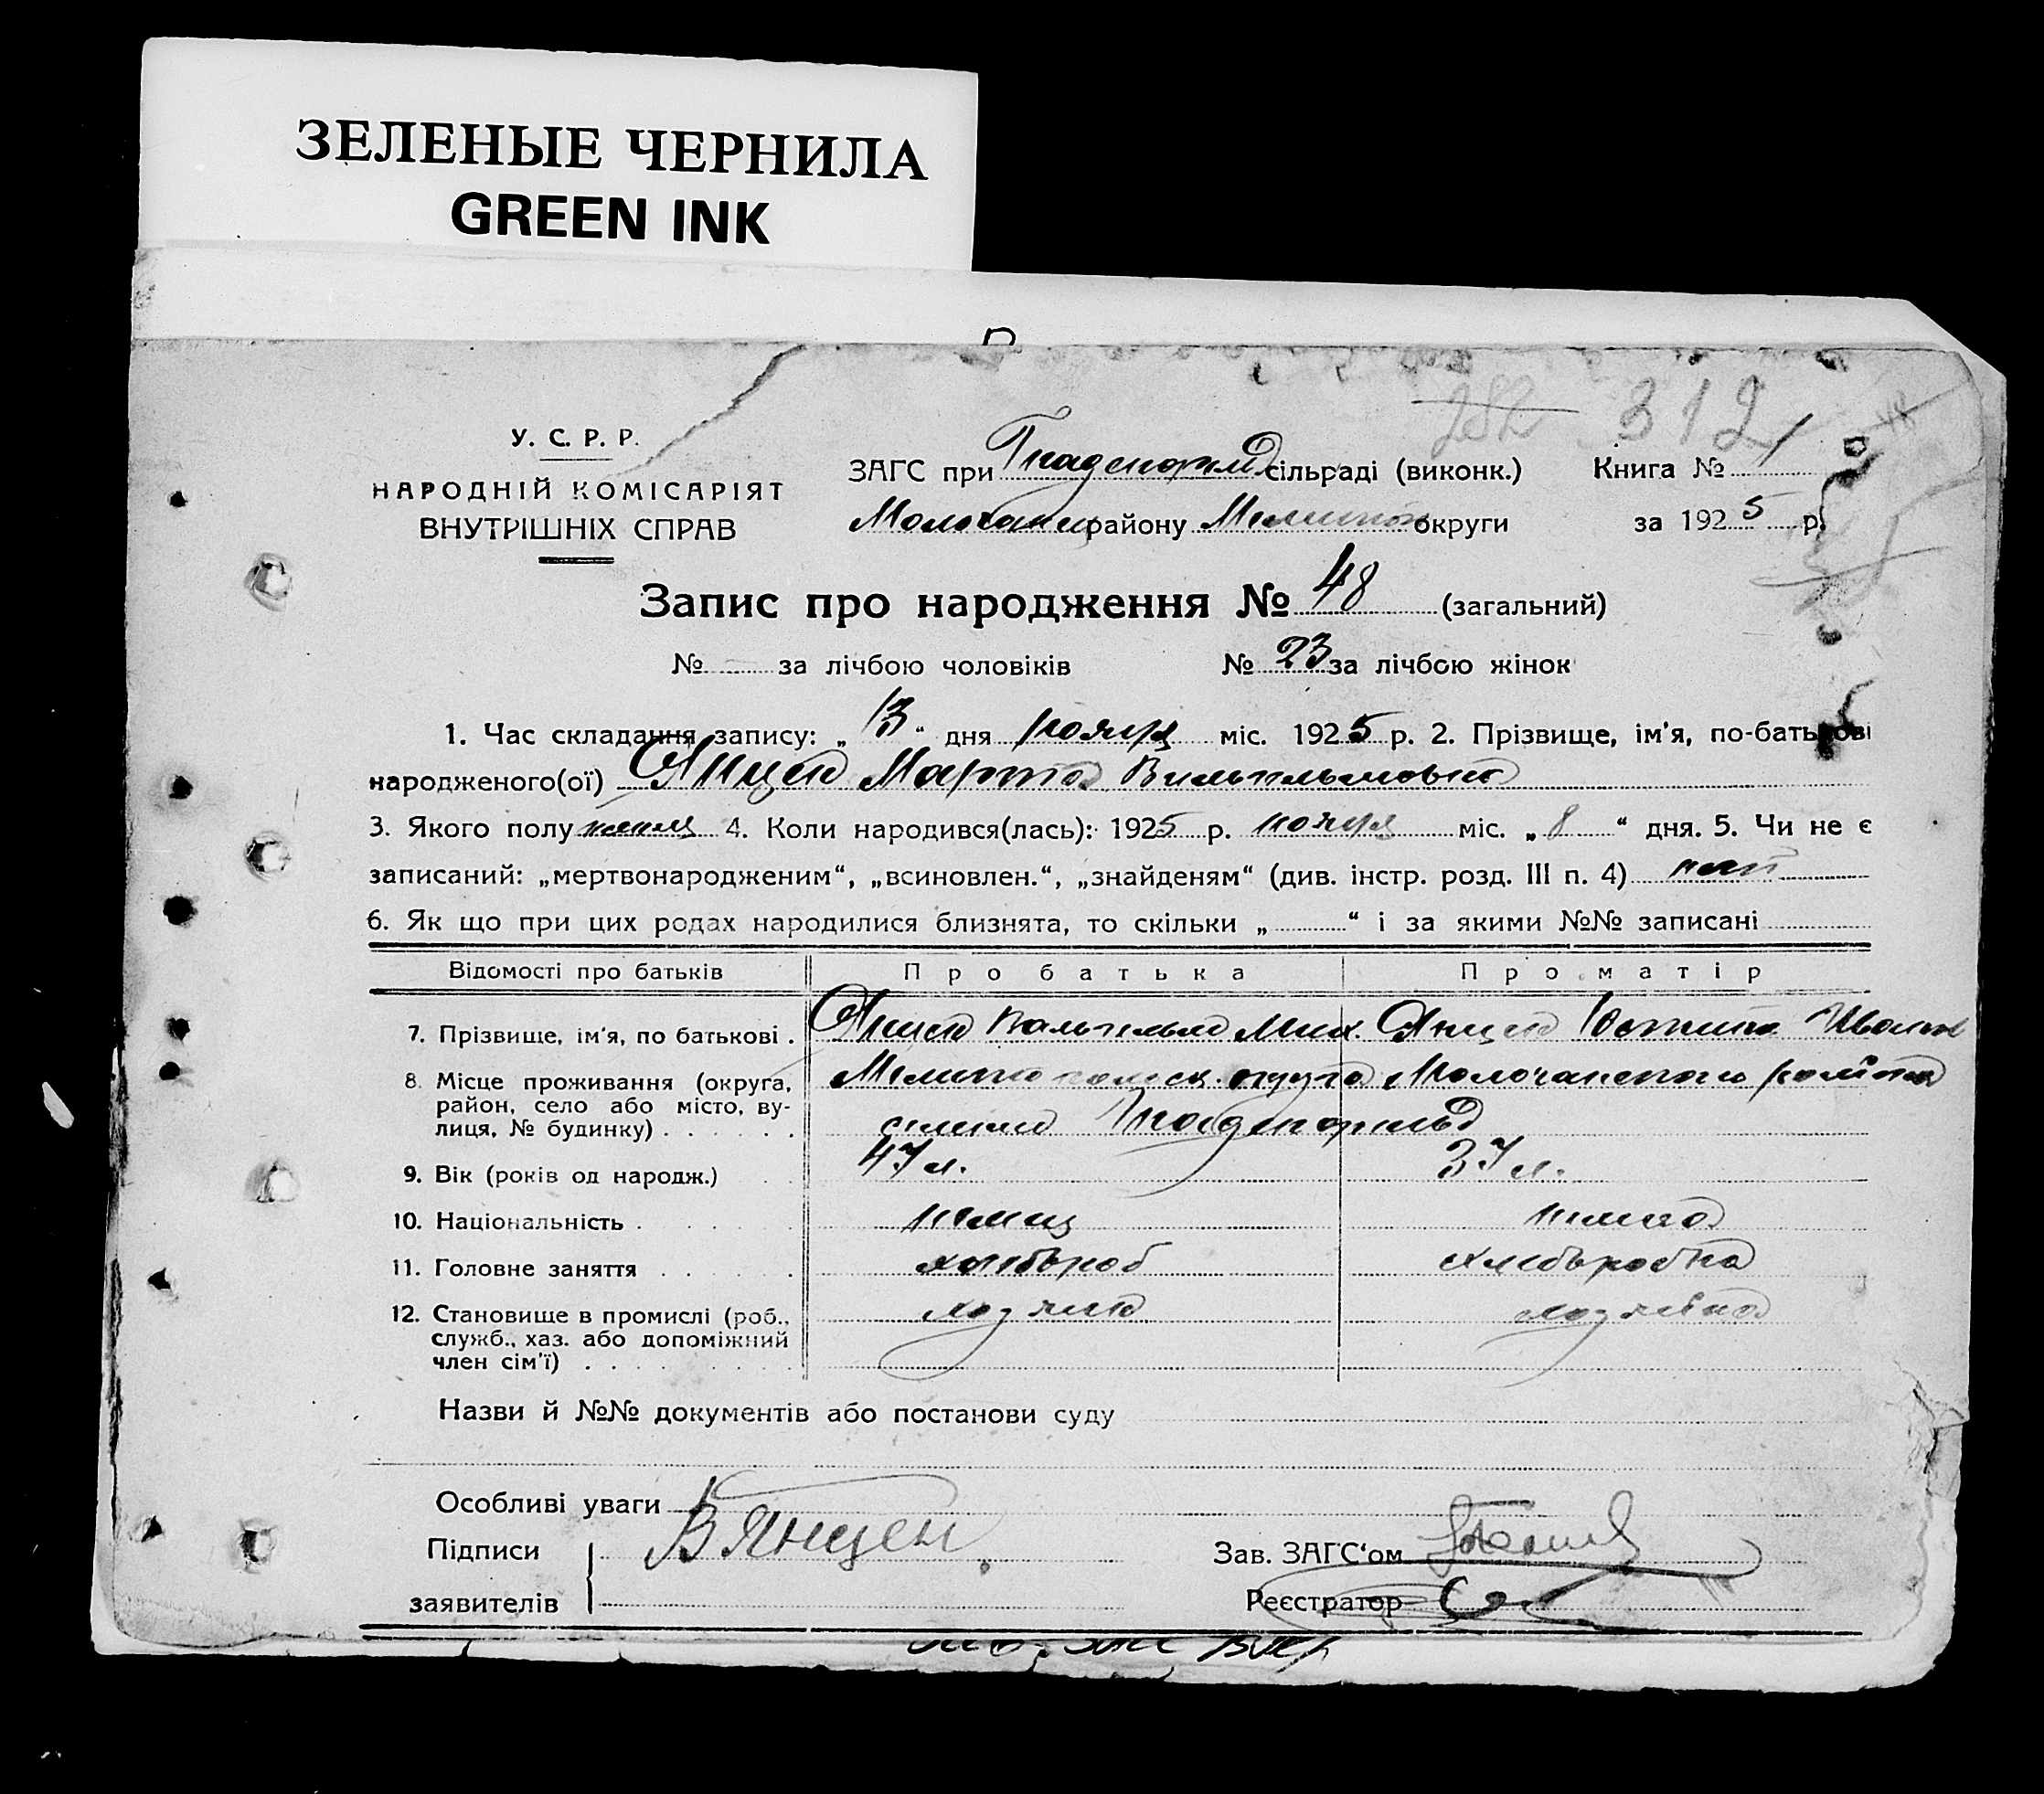 ЗЕЛЕНЫЕ ЧЕРНИЛА
GREEN INK
282 312
У. С. Р. Р.
НАРОДНІЙ КОМІСАРІЯТ
ВНУТРІШНІХ СПРАВ
ЗАГС при Гнаденфельд сільраді (виконк.) Книга № 1
Молочанск району Мелитоп округи за 1925 р.
Запис про народження № 48 (загальний)
№ за лічбою чоловіків № 23 за лічбою жінок
1. Час складання запису: „ 13 “ дня ноября міс. 1925 р. 2. Прізвище, ім'я, по-батькові
народженого(ої) Янцен Марта Вильгельмовна
3. Якого полу 4. Коли народився(лась): 1925 р. ноября міс. „ 8 “ дня. 5. Чи не є
записаний: „мертвонародженим“, „всиновлен.“, „знайденям“ (див. інстр. розд. III п. 4)
6. Як що при цих родах народилися близнята, то скільки „ “ і за якими №№ записані
Відомості про батьків Про батька Про матір
7. Прізвище, ім'я, по батькові . Янцен Вильгельм Янцен
8. Місце проживання (округа, район, село або місто, вулиця, № будинку) . . . . . . Мелитопольск. округа Молочанского района
селение Гнаденфельд
9. Вік (років од народж.) 47 л. 37 л.
10. Національність . немец немка
11. Головне заняття . хлебороб
12. Становище в промислі (роб., служб., хаз. або допоміжний член сім'ї) . хозяин хозяйка
Назви й №№ документів або постанови суду
Особливі уваги
Підписи заявителів В Янцен.
Зав. ЗАГС‘ом
Реєстратор